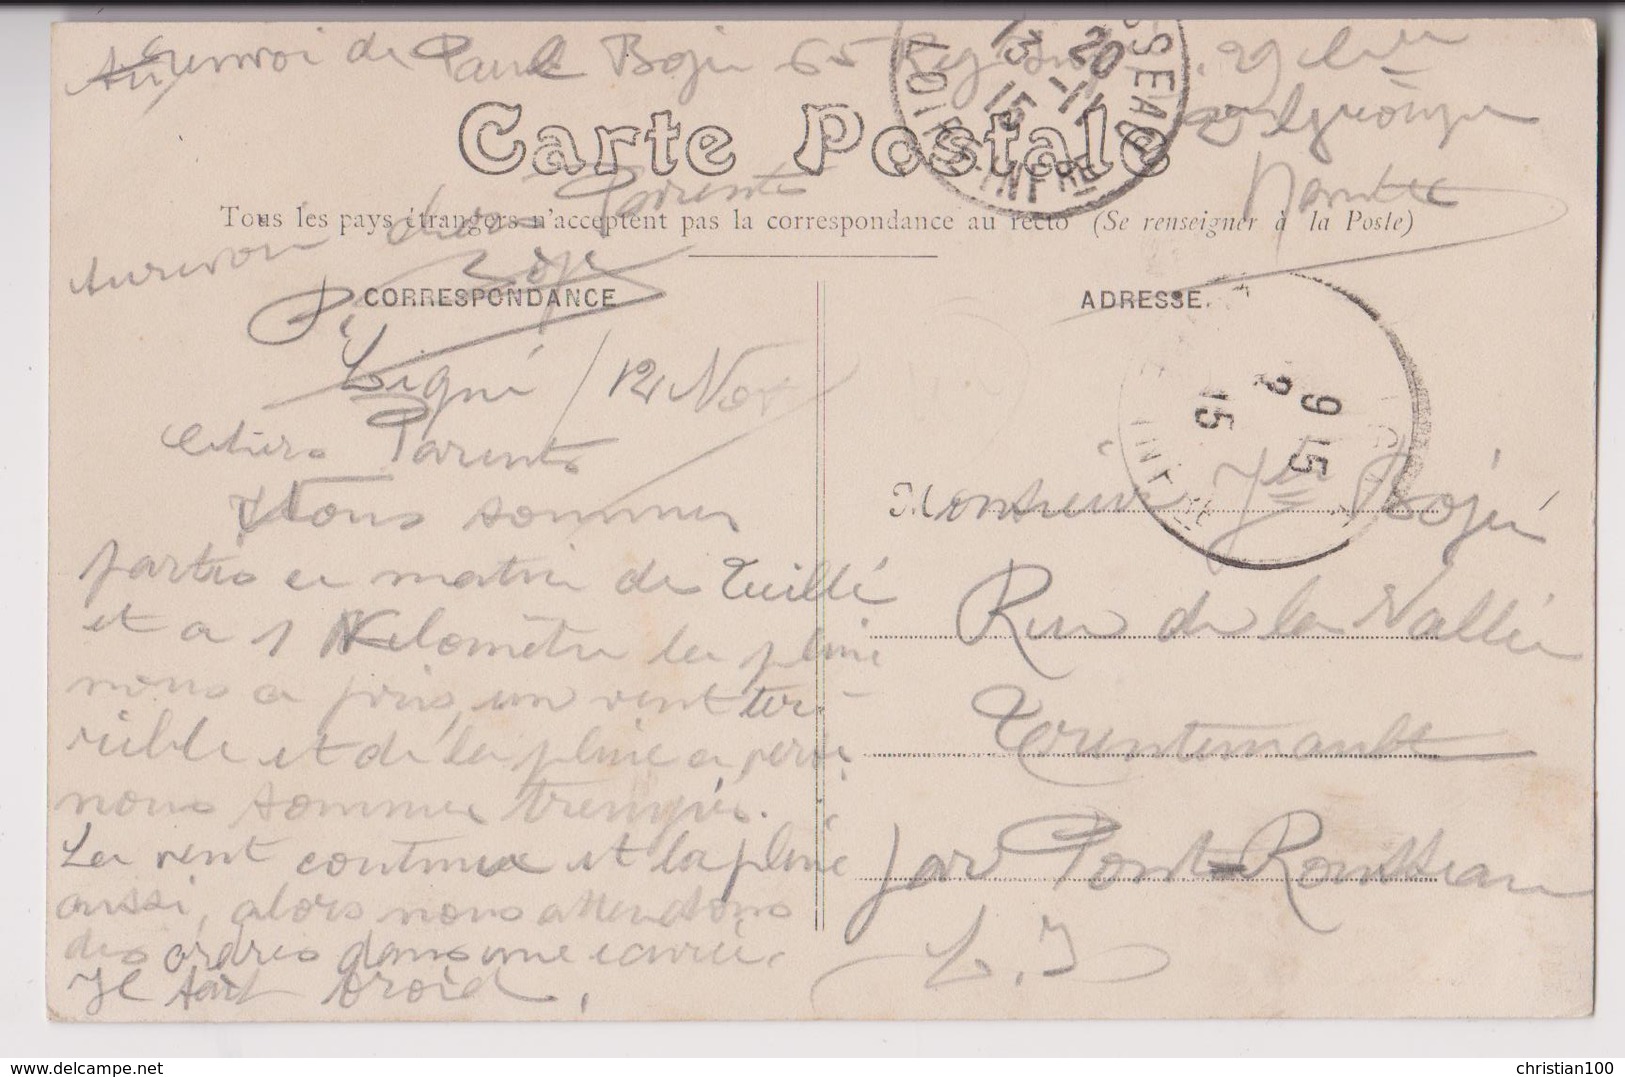 envoi de Paul Bojé 65 Reg 29
Nantes
Carte Postale
Tous les pays étrangers n'acceptent pas la correspondance au recto (Se renseigner à la Poste)
Aurevoir chers Parents
CORRESPONDANCE
ADRESSE.
Ligné / 12 Nov
Chers Parents
Nous sommes
partis ce matin de Teillé
et a 1 Kilomètre la pluie
nous a pris, un vent ter-
rible et de la pluie a
nous sommes trempés.
Le vent continue et la pluie
aussi, alors nous attendons
des ordres dans une écurie.
Il fait froid.
Monsieur Bojé
Rue de la Vallée
Trentemoult
par Pont-Rousseau
L. I
20 -11
13 15
LOIRE-INFRE
9 15
15
INF RE
delcampe.net
christian100